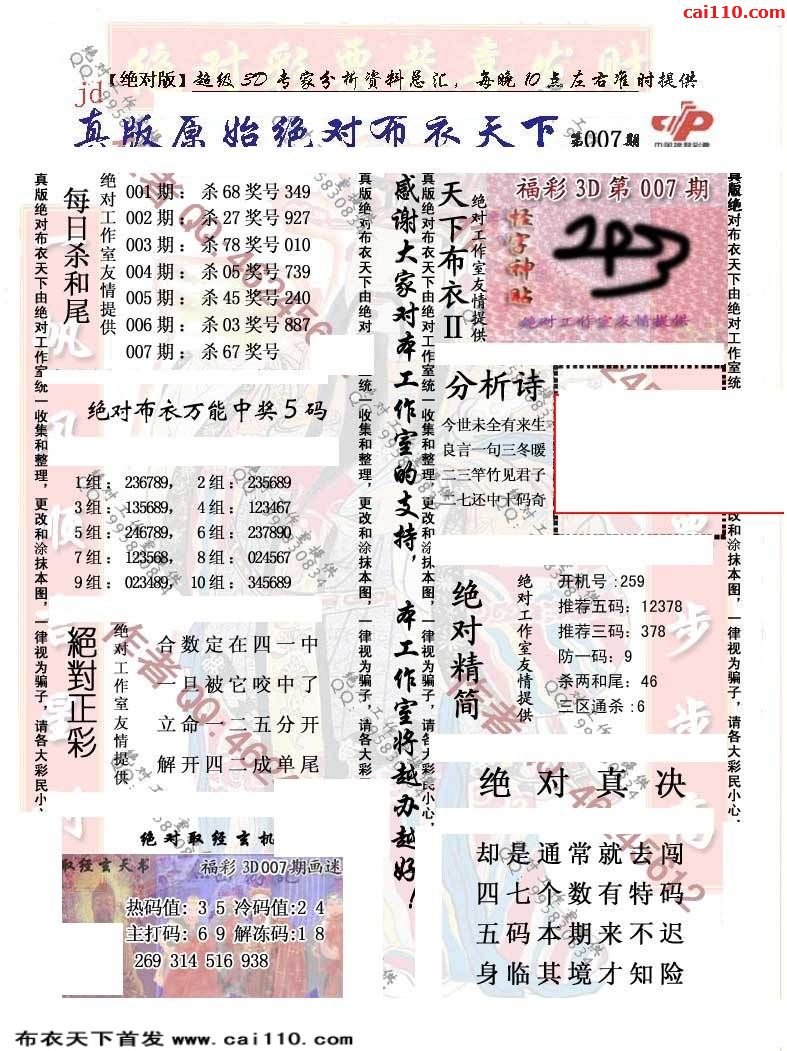 cai110.com
【绝对版】超级3D专家分析资料总汇，每晚10点左右准时提供
jd
真版原始绝对布衣天下 第007期
真版绝对布衣天下由绝对工作室统一收集和整理，更改和涂抹本图，一律视为骗子，请各大彩民小心
每日杀和尾
绝对工作室友情提供
001期： 杀68奖号349
002期： 杀27奖号927
003期： 杀78奖号010
004期： 杀05奖号739
005期： 杀45奖号240
006期： 杀03奖号887
007期： 杀67奖号
绝对布衣万能中奖5码
1组： 236789， 2组： 235689
3组： 135689， 4组： 123467
5组： 246789， 6组： 237890
7组： 123568， 8组： 024567
9组： 023489， 10组： 345689
絕對正彩
绝对工作室友情提供
合数定在四一中
一旦被它咬中了
立命一二五分开
解开四二成单尾
绝对取经玄机
取经玄天书
福彩3D007期画迷
热码值: 3 5 冷码值:2 4
主打码: 6 9 解冻码:1 8
269 314 516 938
真版绝对布衣天下由绝对 统一收集和整理，更改和涂抹本图，一律视为骗子，请各大彩
感谢大家对本工作室的支持，本工作室将越办越好！
真版绝对布衣天下由绝对工作室统一收集和整理，更改和涂 一律视为骗子，请各大彩民小心．
天下布衣II
绝对工作室友情提供
福彩3D第007期
怪字神贴
绝对工作室友情提供
分析诗
今世未全有来生
良言一句三冬暖
二三竿竹见君子
二七还中十码奇
绝对精简
绝对工作室友情提供
开机号:259
推荐五码: 12378
推荐三码: 378
防一码: 9
杀两和尾: 46
三区通杀:6
绝对真决
却是通常就去闯
四七个数有特码
五码本期来不迟
身临其境才知险
真版绝对布衣天下由绝对工作室统 改和涂抹本图，一律视为骗子，请各大彩民小心．
布衣天下首发 www.cai110.com